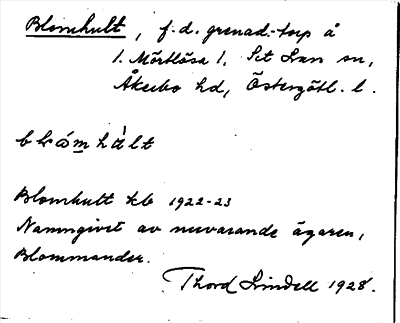 Blomhult, f.d. grenad.-torp å
1. Mörtlösa 1, Sct Lars sn,
Åkerbo hd, Östergötl. l.
Blomhult kb 1922-23
Namngivet av nuvarande ägaren,
Blommander.
Thord Lindell 1928.